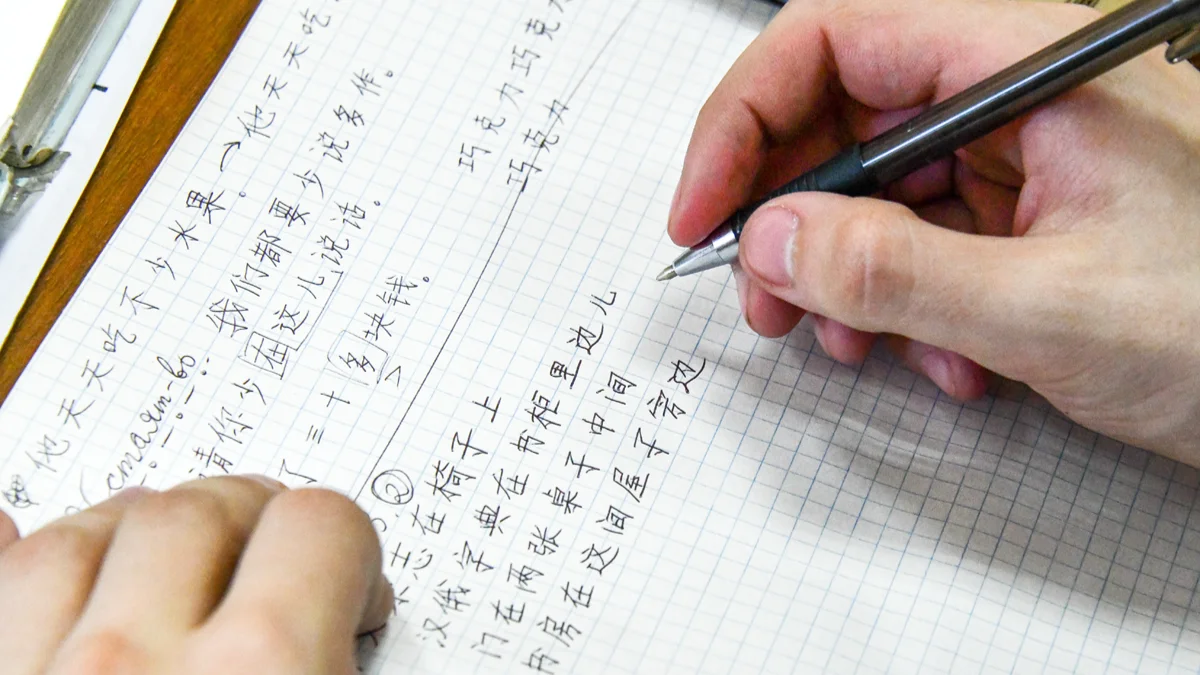 他天天吃不少水果。→他天天吃
我们都要少说多作。
请你少在这儿说话。
了三十多块钱。
巧克力巧克力
巧克力
②
志在椅子上
汉俄字典在书柜里边儿
门在两张桌子中间
书房在这间屋子旁边